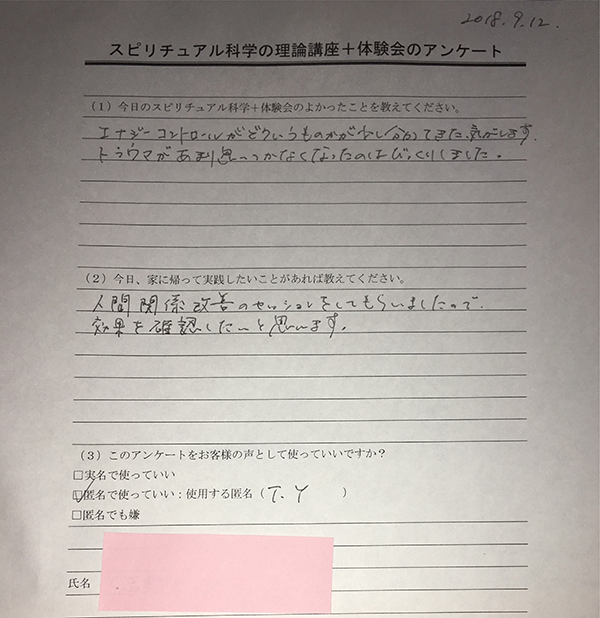 2018.9.12.
スピリチュアル科学の理論講座＋体験会のアンケート
（1）今日のスピリチュアル科学＋体験会のよかったことを教えてください。
エナジーコントロールがどういうものかが少し分かってきた気がします。
トラウマがあまり思いつかなくなったのはびっくりしました。
（2）今日、家に帰って実践したいことがあれば教えてください。
人間関係改善のセッションをしてもらいましたので、
効果を確認したいと思います。
（3）このアンケートをお客様の声として使っていいですか？
□実名で使っていい
☑匿名で使っていい：使用する匿名（T.Y）
□匿名でも嫌
氏名